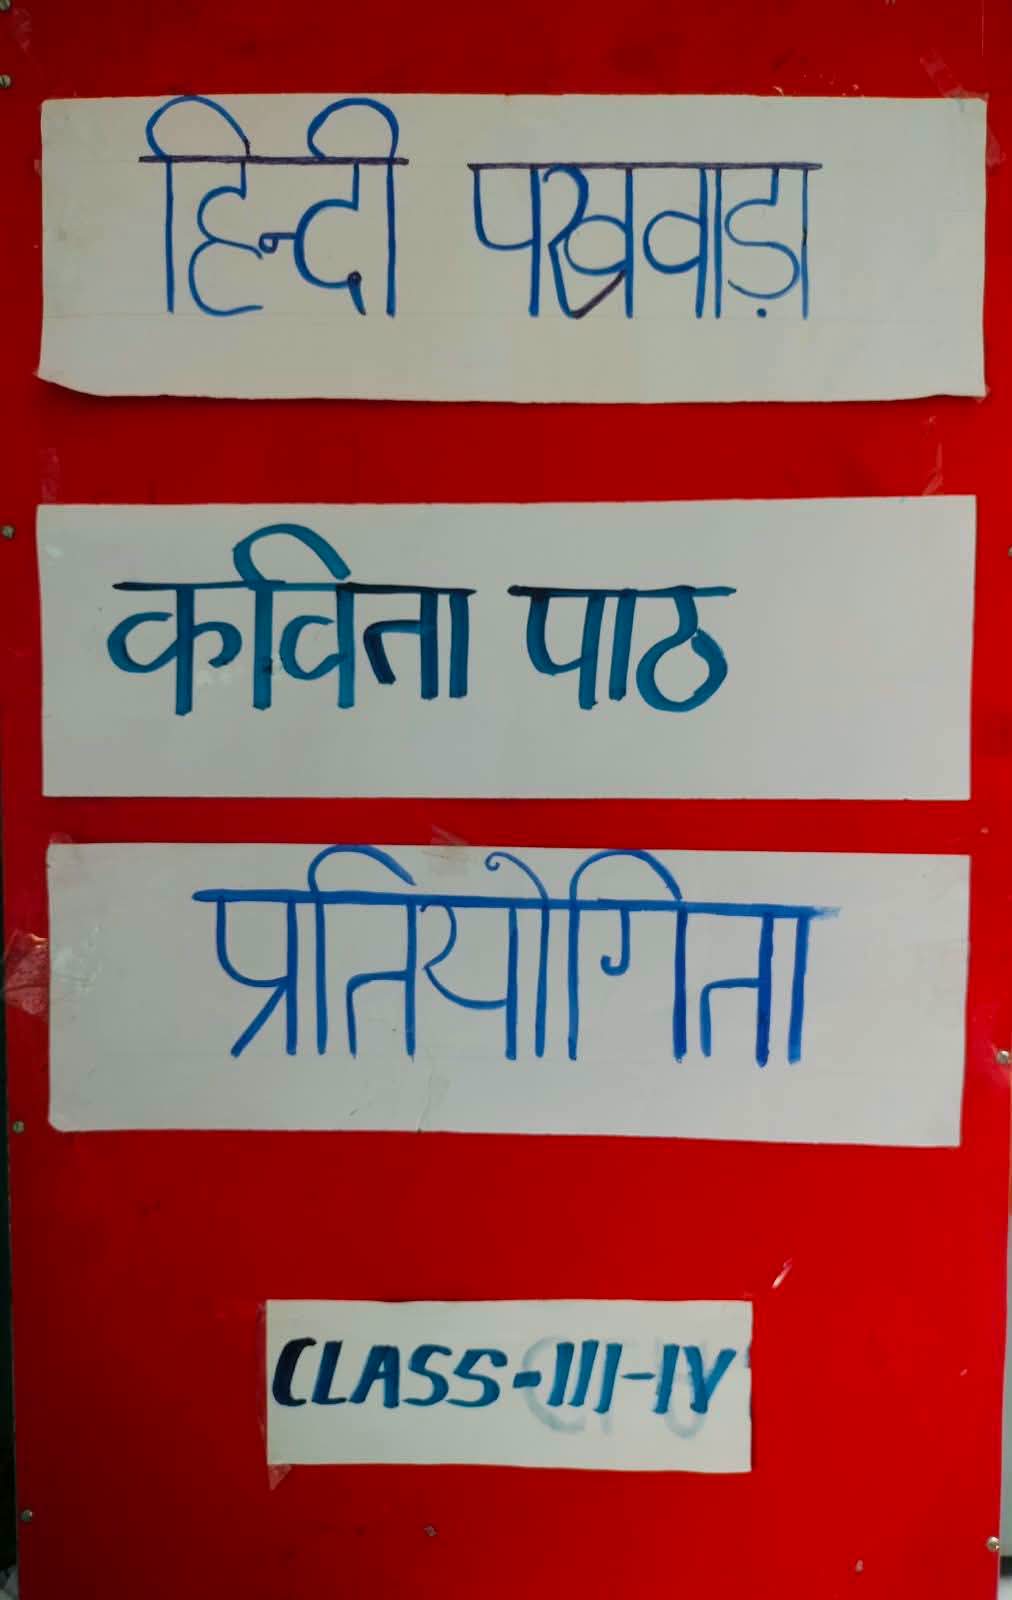 हिन्दी पखवाड़ा
कविता पाठ
प्रतियोगिता
CLASS-III-IV